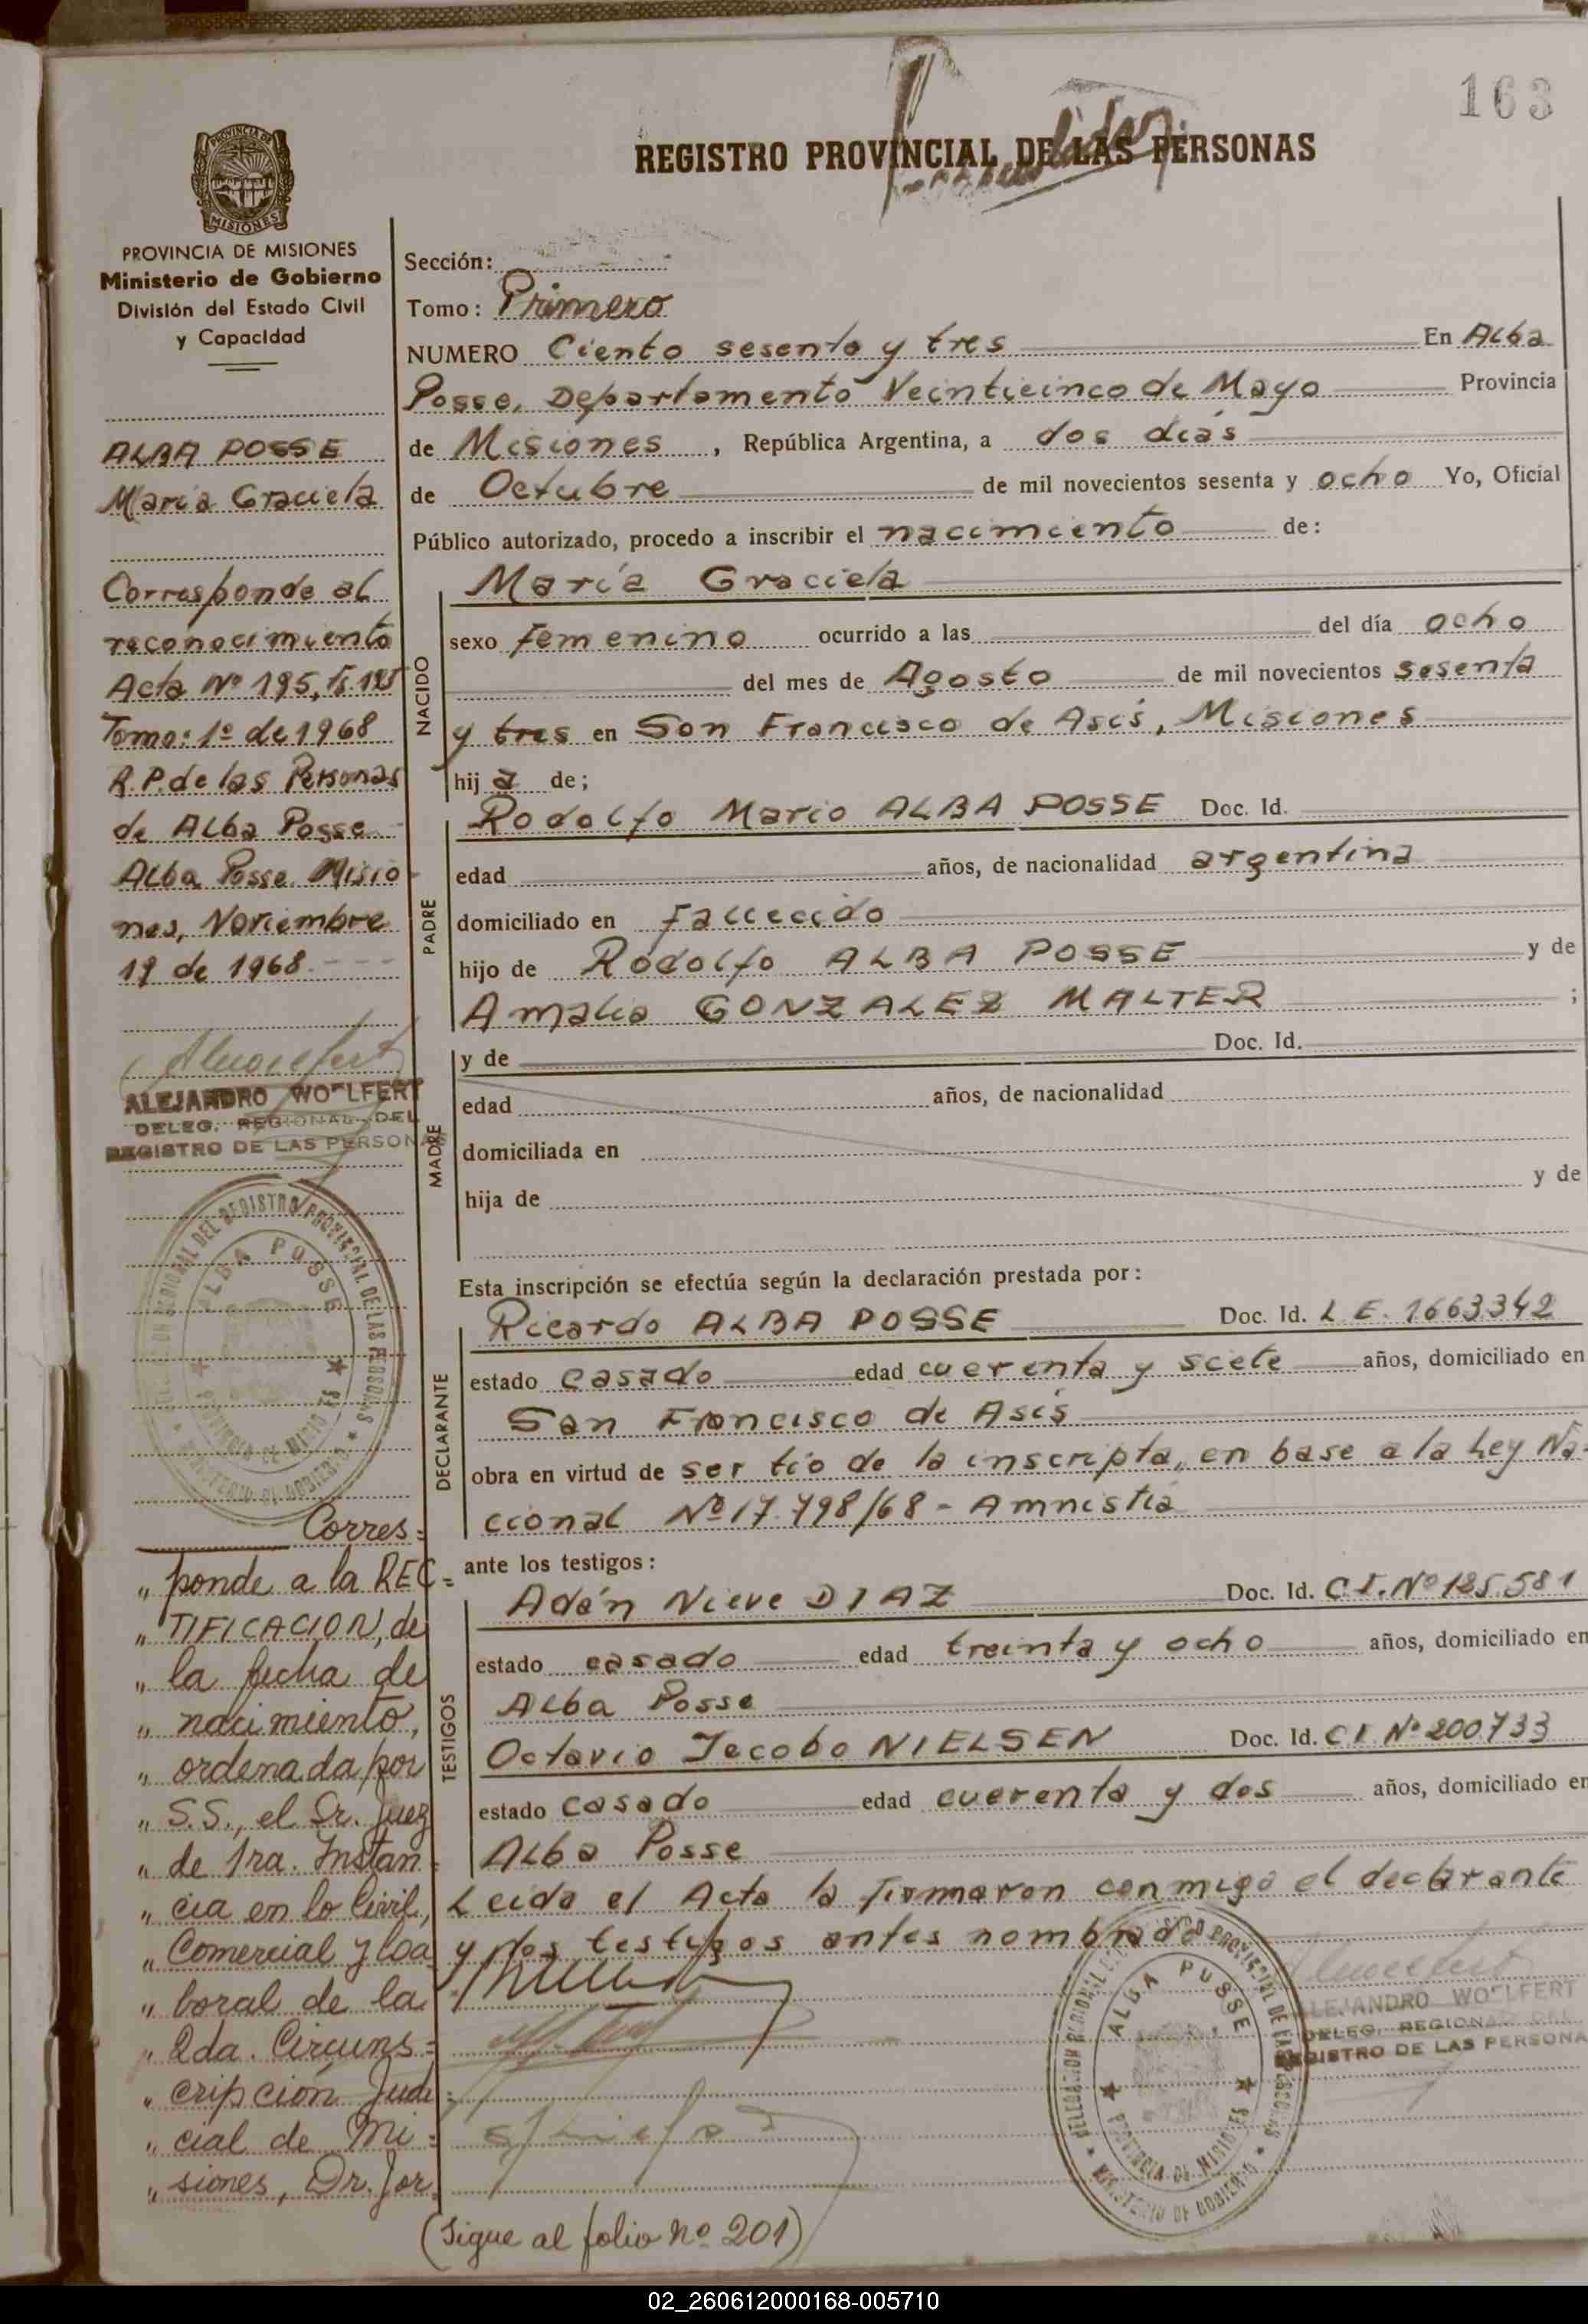 163
REGISTRO PROVINCIAL DE LAS PERSONAS
PROVINCIA DE
MISIONES
PROVINCIA DE MISIONES
Ministerio de Gobierno
División del Estado Civil
y Capacidad
ALBA POSSE
María Graciela
Corresponde al
reconocimiento
Acta Nº 195, fs. 195
Tomo: 1º de 1968
R.P. de las Personas
de Alba Posse
Alba Posse, Misio
nes, Noviembre
19 de 1968.---
ALEJANDRO WOELFERT
DELEG. REGIONAL DEL
REGISTRO DE LAS PERSONAS
ALBA POSSE
Corres=
" ponde a la REC=
" TIFICACION, de
" la fecha de
" nacimiento,
" ordenada por
" S.S., el Sr. Juez
" de 1ra. Instan=
" cia en lo Civil,
" Comercial y Loa
" boral de la
" 2da. Circuns=
" cripción Judi=
" cial de Mi=
" siones, Dr. Jor
Sección:
Tomo: Primero
NUMERO Ciento sesenta y tres En Alba
Posse, Departamento Veinticinco de Mayo Provincia
de Misiones, República Argentina, a dos días
de Octubre de mil novecientos sesenta y ocho Yo, Oficial
Público autorizado, procedo a inscribir el nacimiento de:
NACIDO
María Graciela
sexo femenino ocurrido a las del día ocho
del mes de Agosto de mil novecientos sesenta
y tres en San Francisco de Asís, Misiones
hij a de;
PADRE
Rodolfo Mario ALBA POSSE Doc. Id.
edad años, de nacionalidad argentina
domiciliado en fallecido
hijo de Rodolfo ALBA POSSE y de
Amalia GONZALEZ MALTER ;
MADRE
y de Doc. Id.
edad años, de nacionalidad
domiciliada en
hija de y de
Esta inscripción se efectúa según la declaración prestada por:
DECLARANTE
Ricardo ALBA POSSE Doc. Id. L E. 1663342
estado casado edad cuarenta y siete años, domiciliado en
San Francisco de Asís
obra en virtud de ser tío de la inscripta, en base a la Ley Na-
cional Nº 17.798/68 - Amnistia
ante los testigos:
TESTIGOS
Adán Nieve DIAZ Doc. Id. C.I. Nº 185.581
estado casado edad treinta y ocho años, domiciliado en
Alba Posse
Octavio Jacobo NIELSEN Doc. Id. C I. Nº 200733
estado casado edad cuarenta y dos años, domiciliado en
Alba Posse
Leida el Acta la firmaron conmigo el declarante
y los testigos antes nombrados
ALBA POSSE
PROVINCIA DE MISIONES
MINISTERIO DE GOBIERNO
ALEJANDRO WOELFERT
DELEG. REGIONAL DEL
REGISTRO DE LAS PERSONA
(Sigue al folio nº 201)
02_260612000168-005710